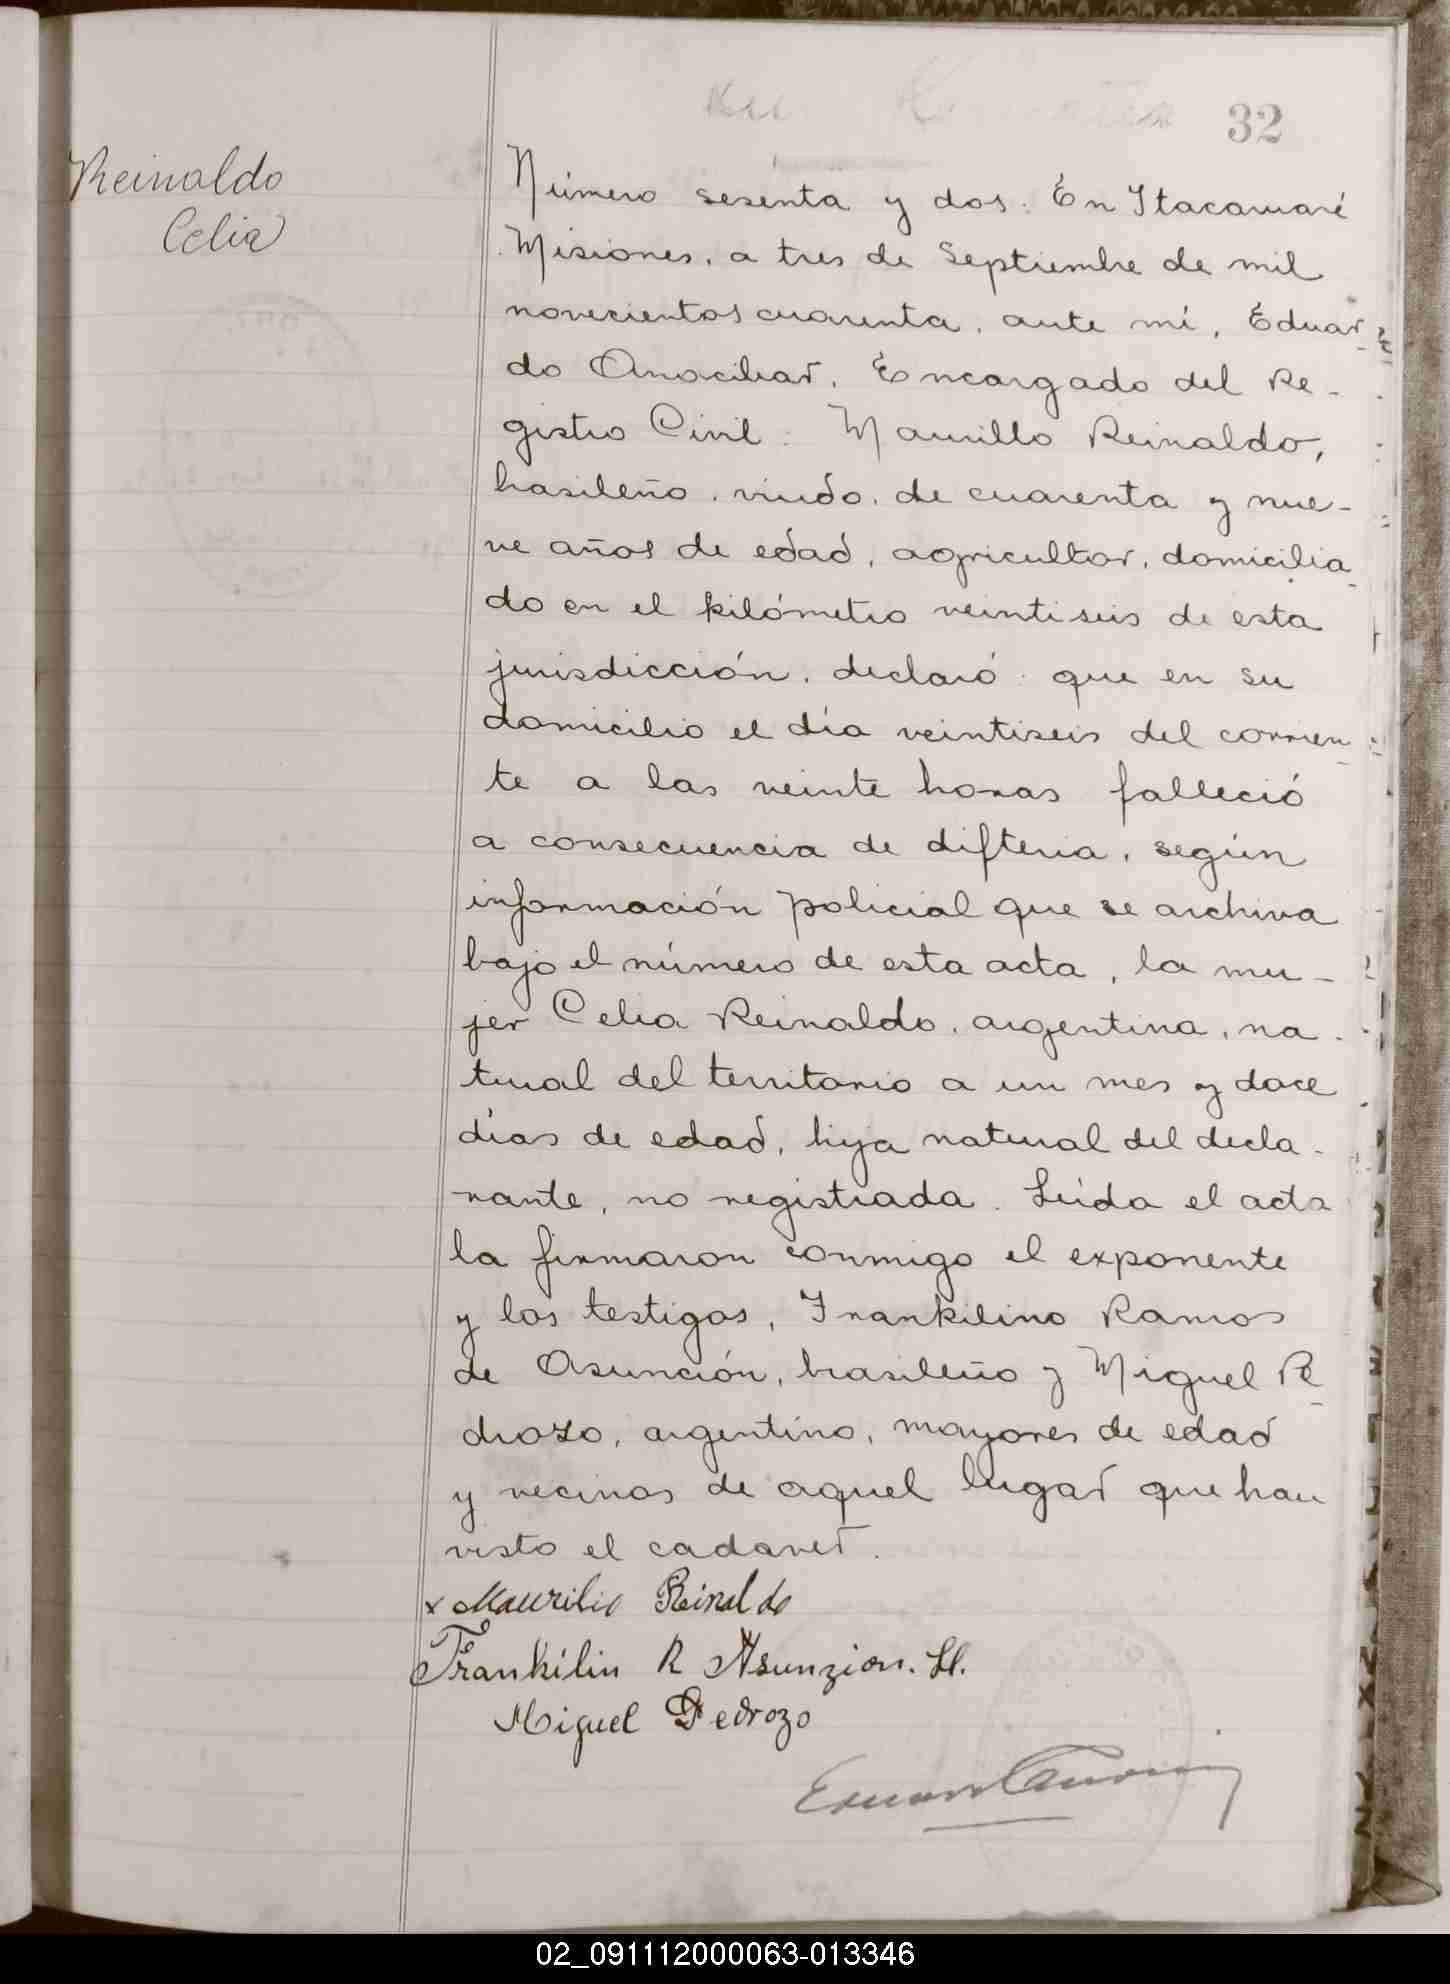 32
Reinaldo
Celia
Número sesenta y dos. En Itacaruaré
Misiones, a tres de Septiembre de mil
novecientos cuarenta, ante mí, Eduar-
do Anocibar, Encargado del Re-
gistro Civil: Maurillo Reinaldo,
brasileño, viudo, de cuarenta y nue-
ve años de edad, agricultor, domicilia-
do en el kilómetro veintiseis de esta
jurisdicción, declaró: que en su
domicilio el día veintiseis del corrien-
te a las veinte horas falleció
a consecuencia de difteria, según
información policial que se archiva
bajo el número de esta acta, la mu-
jer Celia Reinaldo, argentina, na-
tural del territorio a un mes y doce
días de edad, hija natural del decla-
rante, no registrada. Leída el acta
la firmaron conmigo el exponente
y los testigos, Frankilino Ramos
de Asunción, brasileño y Miguel Pe-
drozo, argentino, mayores de edad
y vecinos de aquel lugar que han
visto el cadaver.
x Maurilio Reinaldo
Frankilin R Asunzion. H.
Miguel Pedrozo
02_091112000063-013346